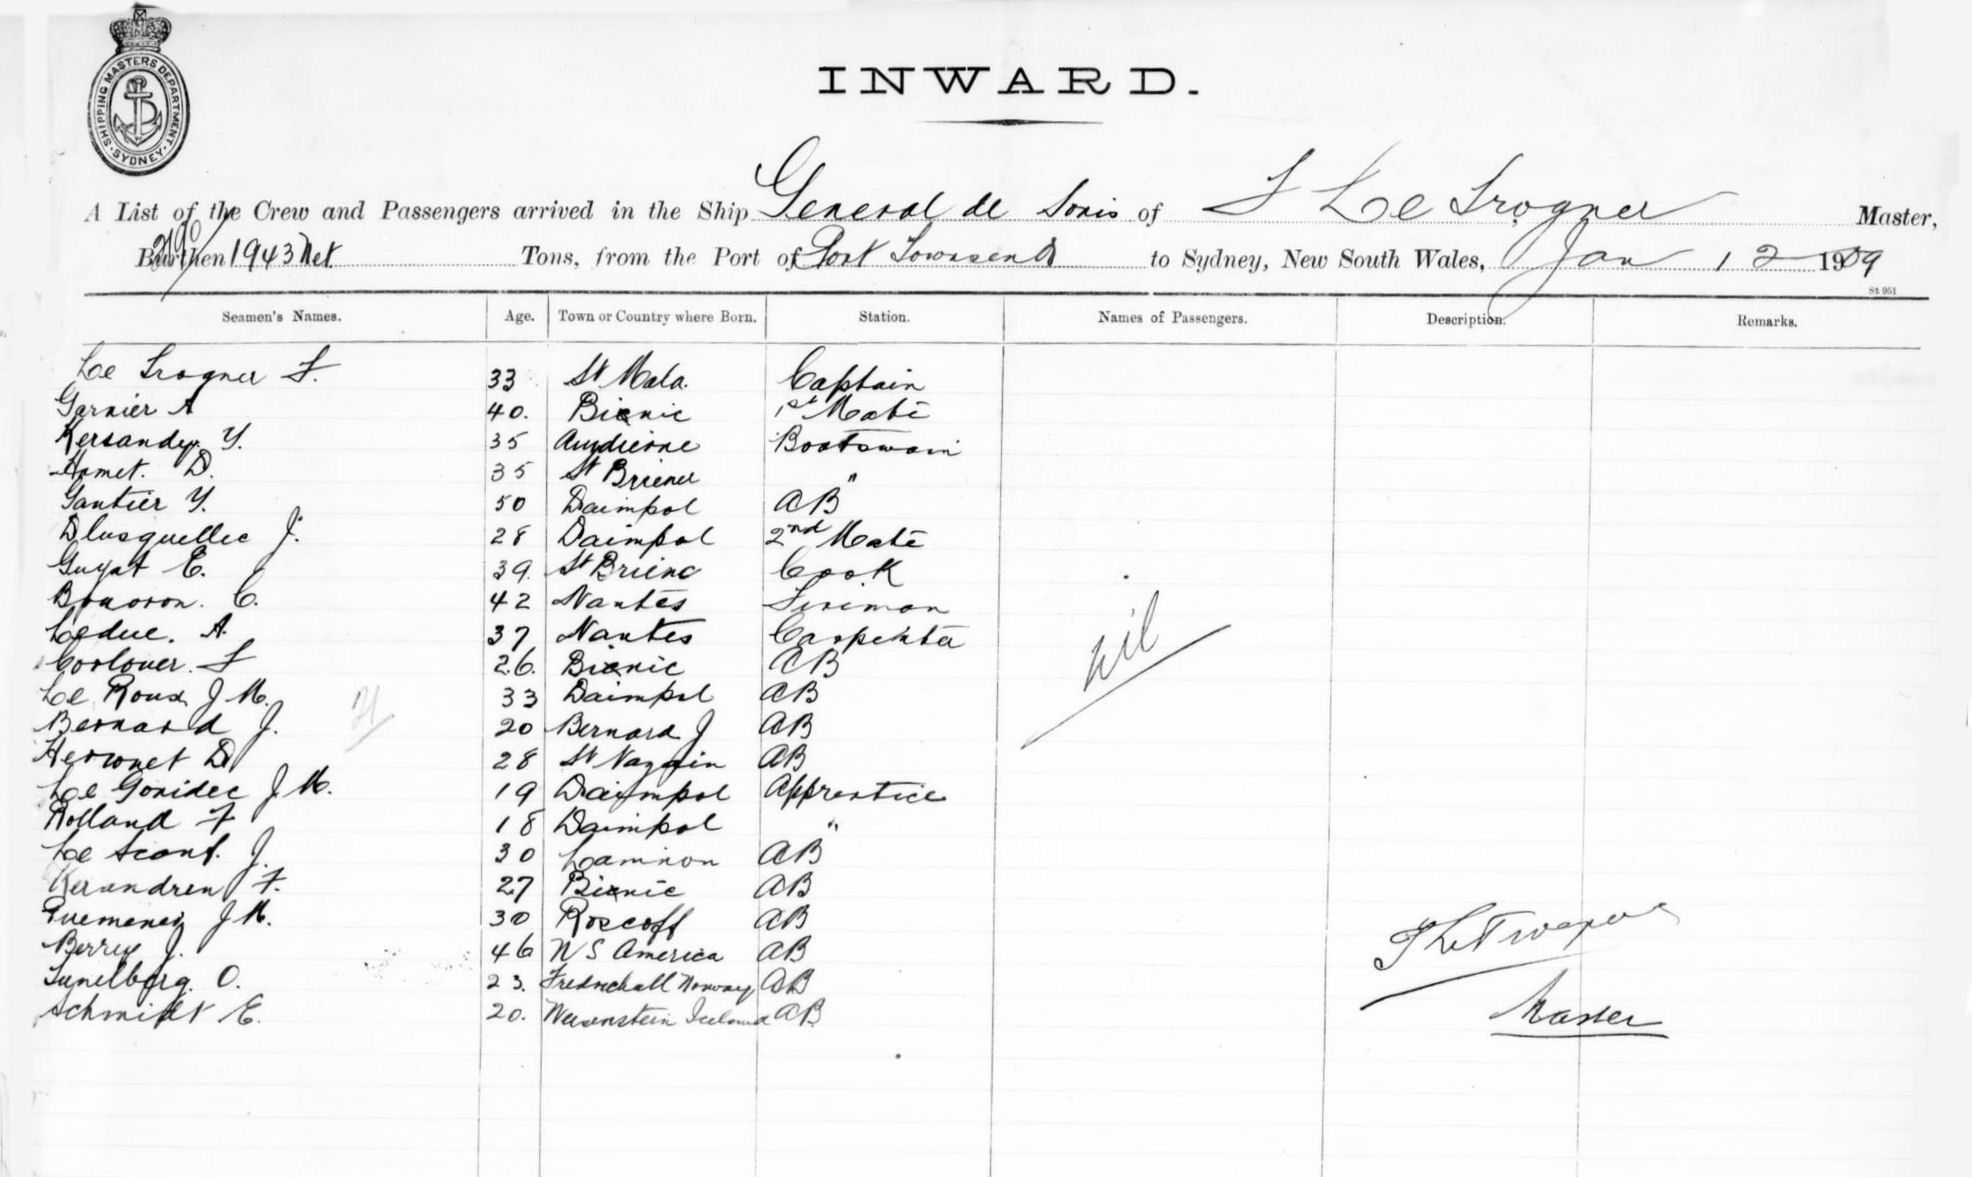 SHIPPING MASTERS DEPARTMENT · SYDNEY ·
INWARD.
A List of the Crew and Passengers arrived in the Ship General de Sonis of F Le Trogner Master,
Burthen 1943 Net Tons, from the Port of Port Townsend to Sydney, New South Wales, Jan 12 1909
St 951
Seamen's Names. Age. Town or Country where Born. Station. Names of Passengers. Description. Remarks.
Le Trogner F. 33 St Malo. Captain
Garnier A 40. Binic 1st Mate
Kersandy Y. 35 Audierne Boatswain
Hamet. D. 35 St Brieuc "
Gautier Y. 50 Daimpol AB
Dlusquellec J. 28 Daimpol 2nd Mate
Guyat E. 39. St Brienc Cook
C. 42 Nantes Fireman
Leduc. A. 37 Nantes Carpenter
Corlouer. F 26. Binic AB
Le Roux J M. 33 Daimpol AB
Bernard J. 20 Bernard J AB
Heronet D 28 St AB
Le Gonidec J M. 19 Daimpol Apprentice
Rolland F 18 Daimpol "
Le Scont. J. 30 Lannion AB
Kerandren F. 27 Binic AB
Quemenez J M. 30 Roscoff AB
Berrux J. 46 N S America AB
Tunelborg. O. 23. Fredrickall Norway AB
Schmidt E. 20. AB
nil
Master